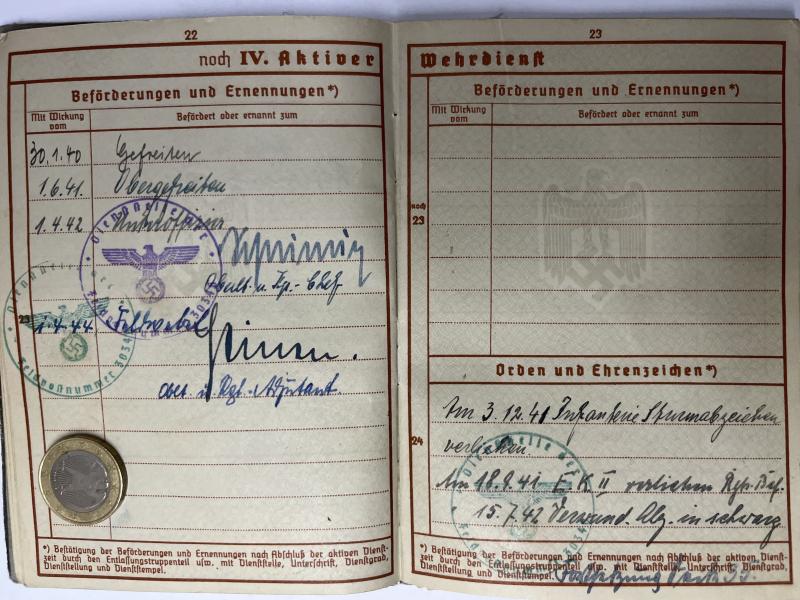 22
noch IV. Aktiver
Beförderungen und Ernennungen*)
Mit Wirkung vom
Befördert oder ernannt zum
30.1.40 Gefreiten
1.6.41. Obergefreiten
1.4.42 Unteroffizier
Dienststelle der
Feldpostnummer
Oberlt. u. Kp.-Chef
23
1.4.44 Feldwebel
Dienststelle
Feldpostnummer 3034
Oblt. u. Rgt.-Adjutant.
*) Bestätigung der Beförderungen und Ernennungen nach Abschluß der aktiven Dienst-
zeit durch den Entlassungstruppenteil usw. mit Dienststelle, Unterschrift, Dienstgrad,
Dienststellung und Dienststempel.
23
Wehrdienst
Beförderungen und Ernennungen*)
Mit Wirkung vom
Befördert oder ernannt zum
noch
23
Orden und Ehrenzeichen*)
Am 3.12.41 Infanterie Sturmabzeichen
24
verliehen.
Am 18.9.41 E.K. II verliehen
15.7.42 Verwund. Abz. in schwarz
Dienststelle der
*) Bestätigung der Beförderungen und Ernennungen nach Abschluß der aktiven Dienst-
zeit durch den Entlassungstruppenteil usw. mit Dienststelle, Unterschrift, Dienstgrad,
Dienststellung und Dienststempel.
Fortsetzung Seite 33.